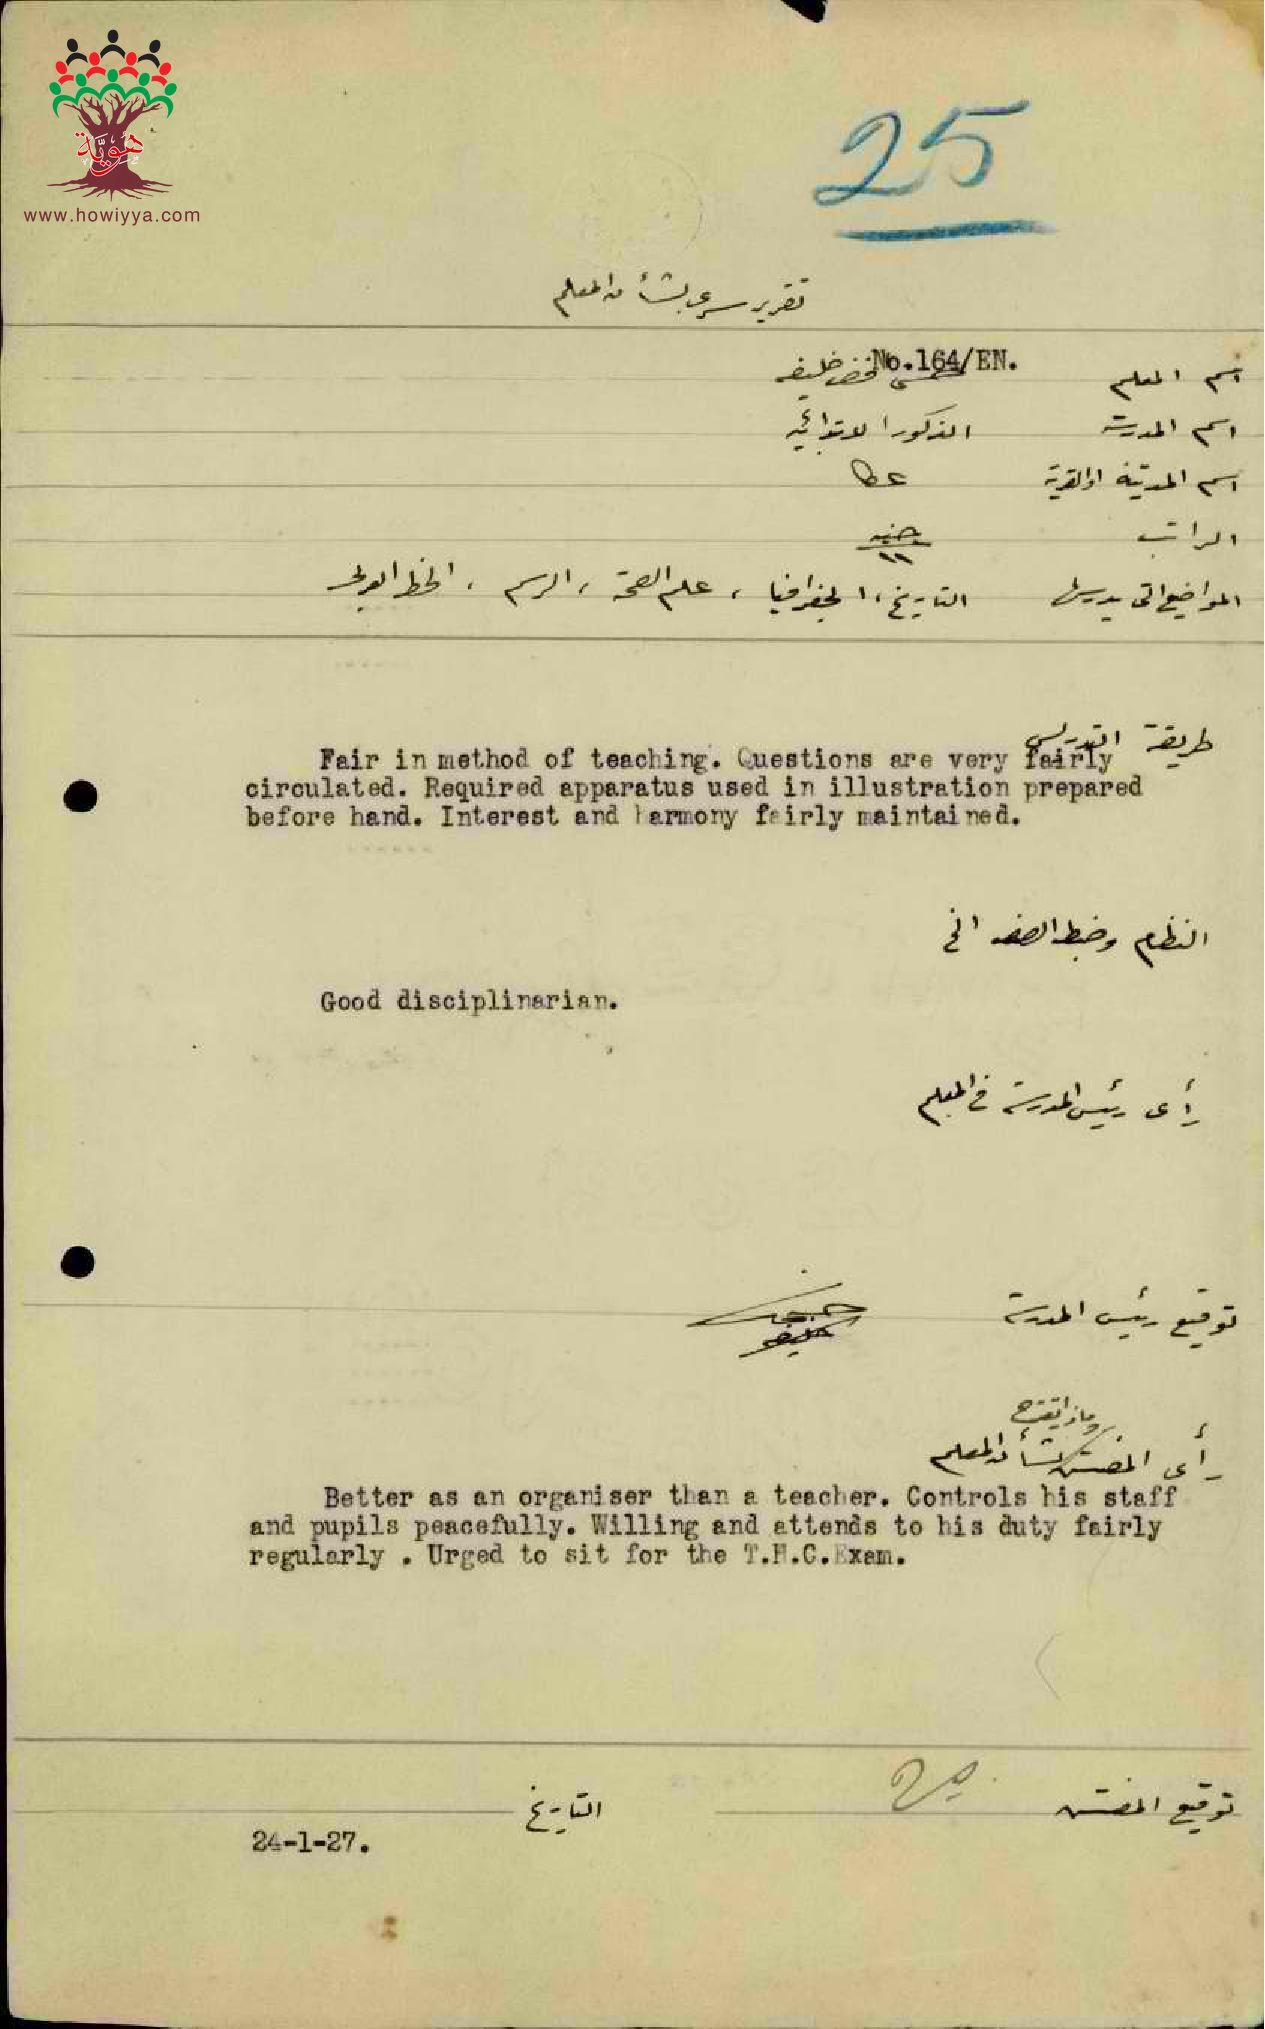 هوية
www.howiyya.com
25
تقرير سري بشأن المعلم
No.164/EN.
اسم المعلم خليفه
اسم المدرسة الذكور الابتدائيه
اسم المدينة او القرية عكا
الراتب جنيه ١١
المواضيع التي يدرسها التاريخ، الجغرافيا، علم الصحة، الرسم، الخط العربي
طريقة التدريس
Fair in method of teaching. Questions are very fairly
circulated. Required apparatus used in illustration prepared
before hand. Interest and harmony fairly maintained.
النظام وضبط الصف الخ
Good disciplinarian.
رأي رئيس المدرسة في المعلم
توقيع رئيس المدرسة
وماذا يقترح
رأي المفتش بشأن المعلم
Better as an organiser than a teacher. Controls his staff
and pupils peacefully. Willing and attends to his duty fairly
regularly . Urged to sit for the T.H.C.Exam.
توقيع المفتش التاريخ
24-1-27.